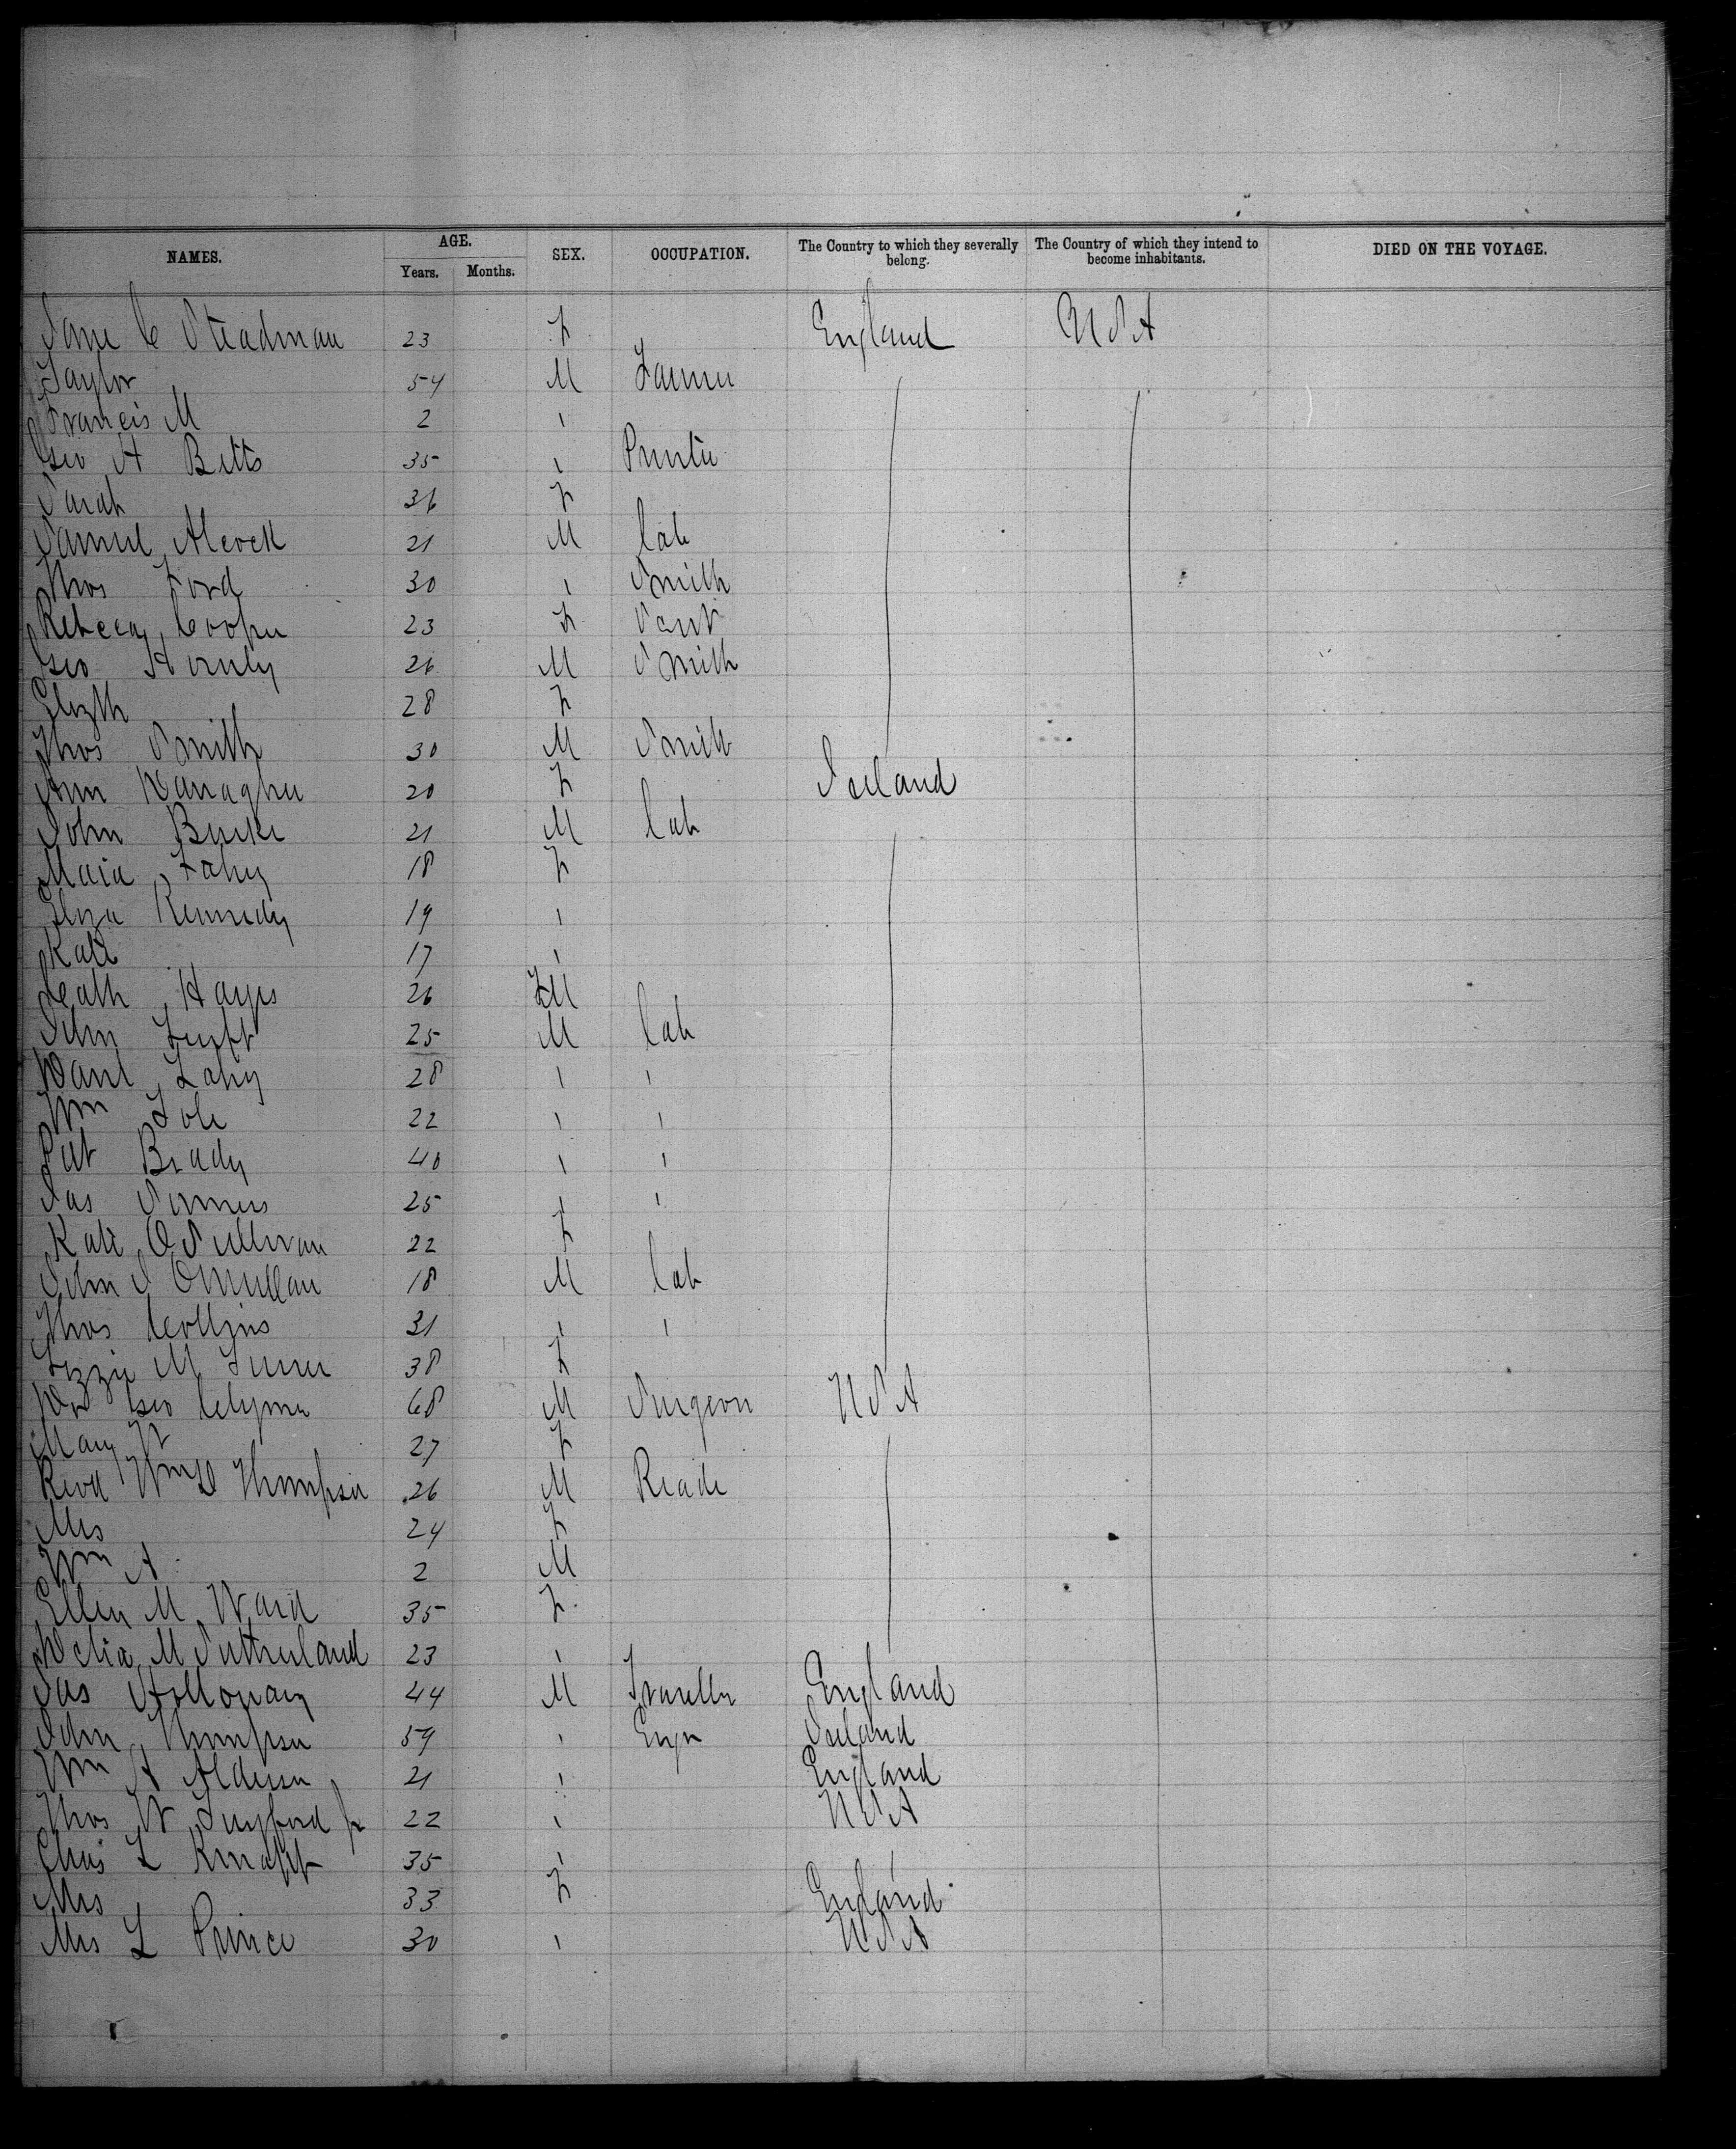 NAMES. AGE. SEX. OCCUPATION. The Country to which they severally belong. The Country of which they intend to become inhabitants. DIED ON THE VOYAGE.
Years. Months.
Jane C Steadman 23 F England USA
Taylor 54 M Farmer
Francis M 2 "
Geo H Betts 35 " Printer
Sarah 36 F
Samuel Alcock 21 M Lab
Thos Ford 30 " Smith
Rebecca Cooper 23 F Servt
Geo 26 M Smith
Elizth 28 F
Thos Smith 30 M Smith
Ann 20 F Ireland
John Burke 21 M Lab
Maria Fahy 18 F
Eliza Kennedy 19 "
Kate 17 "
Cath Hayes 26 F
John 25 M Lab
Danl Fahy 28 " "
Wm 22 " "
Pat Brady 40 " "
Jas Somers 25 " "
Kate O Sullivan 22 F
John J 18 M Lab
Thos Collins 31 " "
Lizzie M 38 F
Dr Geo 68 M Surgeon USA
Mary W 27 F
Revd Wm Thompson 26 M
Mrs 24 F
Wm A 2 M
Ellen M Ward 35 F
Delia M Sutherland 23 "
Jas Holloway 44 M Traveller England
John Thompson 59 " Engr Ireland
Wm A Alderson 21 " England
Thos W Jr 22 " USA
Chas L Knapp 35 " "
Mrs 33 F England
Mrs L Prince 30 " USA